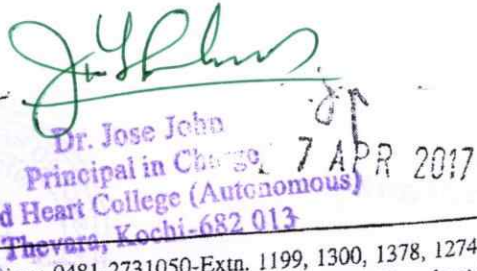 Dr. Jose John
Principal in Charge
7 APR 2017
d Heart College (Autonomous)
Thevara, Kochi-682 013
0481 2731050-Extn. 1199, 1300, 1378, 1274